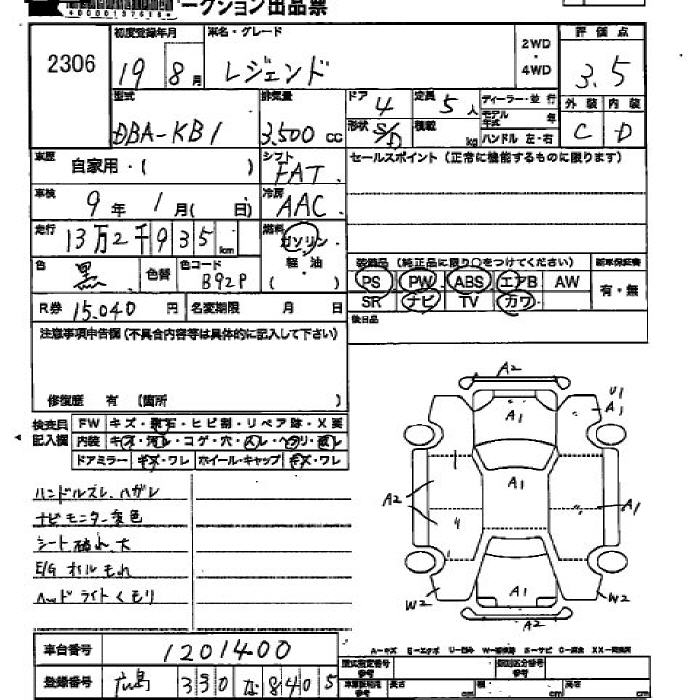 ークション出品票
2306
初度登録年月
車名・グレード
2WD
・
4WD
評価点
19 8月
レジェンド
3.5
型式
排気量
ドア 4
定員 5人
ディーラー・並行
外装 内装
DBA-KB1
3,500 cc
形状 S/D
積載 kg
モデル年式 年
ハンドル 左・右
C D
車歴 自家用・( )
シフト FAT
セールスポイント(正常に機能するものに限ります)
車検 9年 1月( 日)
冷房 AAC
走行 13万2千935km
燃料 ガソリン
軽・油
( )
装備品(純正品に限り○をつけてください)
新車保証書
色 黒
色替
色コード B92P
PS PW ABS エアB AW
有・無
SR ナビ TV カワ
R券 15,040円
名変期限 月 日
後日品
注意事項申告欄(不具合内容等は具体的に記入して下さい)
修復歴 有 (箇所 )
検査員記入欄
FW キズ・飛石・ヒビ割・リペア跡・X要
内装 キズ・汚れ・コゲ・穴・スレ・ヘタリ・破レ
ドアミラー キズ・ワレ ホイール・キャップ キズ・ワレ
ハンドルスレ、ハガレ
ナビモニター変色
シート破れ大
E/Gオイルもれ
ヘッドライトくもり
A2
U1
A1
A1
A1
A2
A1
A1
W2
W2
A2
A-キズ E-エクボ U-凹ミ W-補修跡 S-サビ C-腐食 XX-交換済
車台番号 1201400
登録番号 広島 330 な 8405
型式指定番号
参考
類別区分番号
参考
長さ cm
幅 cm
高さ cm